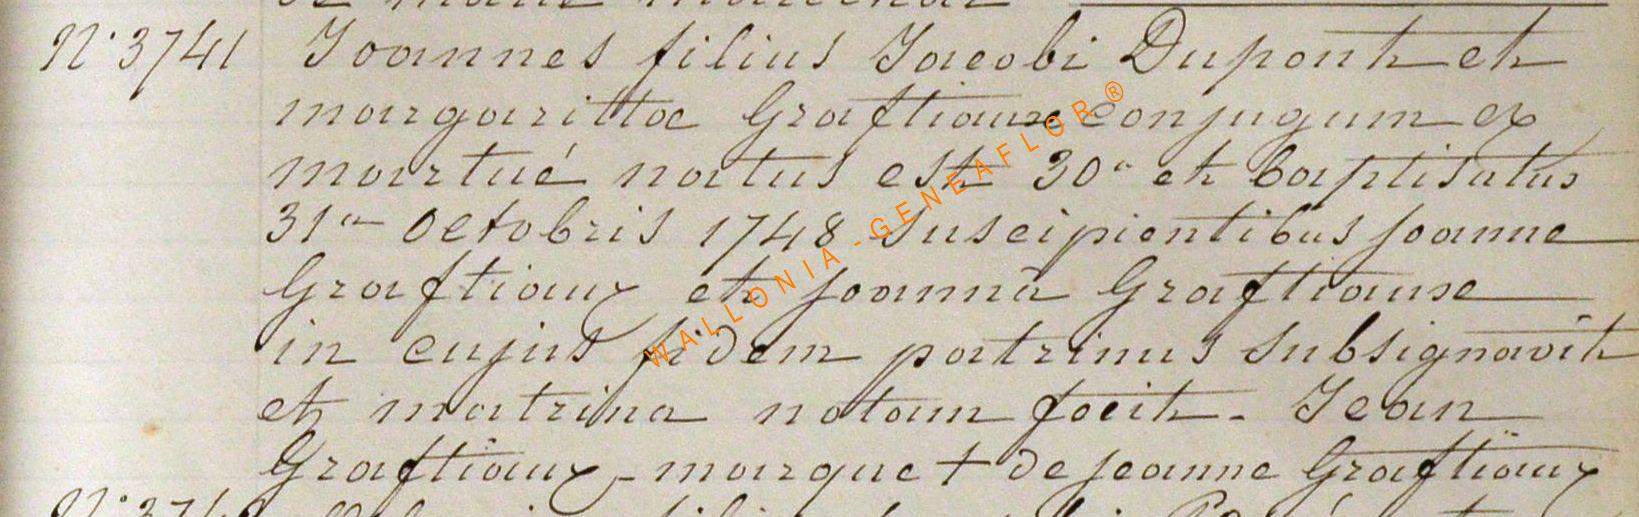 de marie marechal
N° 3741 Joannes filius Jacobi Dupont et
margaritta Graftiaux conjugum ex
martué natus est 30a et baptisatus
31a octobris 1748 suscipientibus joanne
Graftiaux et joanna Graftiause
in cujus fidem patrinus subsignavit
et matrina notam fecit - Jean
Graftiaux - marque + de jeanne Graftiaux
WALLONIA - GENEAFLOR ®